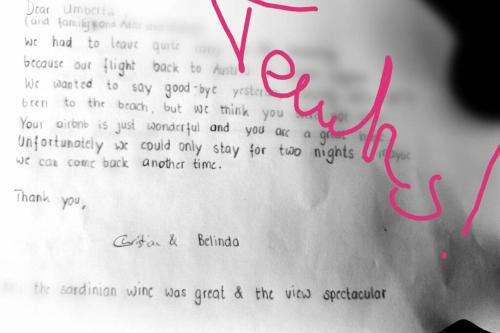 Dear Umberto
(and family
we had to leave quite early
because our flight back to Aust
We wanted to say good-bye yester
been to the beach, but we think you were not
Your airbnb is just wonderful and you are a great
Unfortunately we could only stay for two nights
we can come back another time.
Thank you,
& Belinda
the sardinian wine was great & the view spectacular
Tenks!